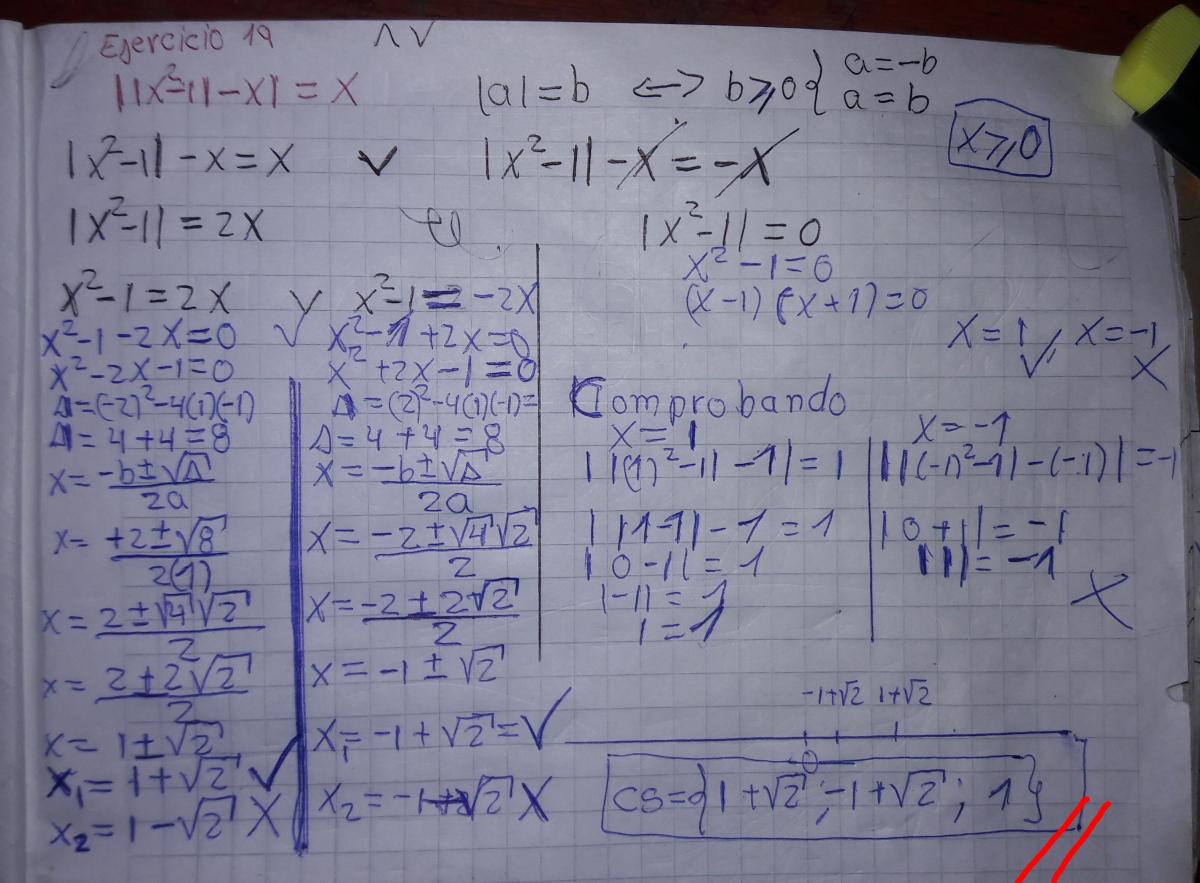 Ejercicio 19 ∧∨
||x²-1|-x| = x
|a| = b ⟷ b⩾0 { a=-b
a=b
x⩾0
|x²-1| - x = x ∨ |x²-1| - x = -x
|x²-1| = 2x
|x²-1| = 0
x²-1 = 2x ∨ x²-1 = -2x
x²-1-2x=0 ∨ x²-1+2x=0
x²-2x-1=0
Δ=(-2)²-4(1)(-1)
Δ=4+4=8
x= -b±√Δ / 2a
x= +2±√8 / 2(1)
x= 2±√4√2 / 2
x= 2±2√2 / 2
x= 1±√2
x₁= 1+√2 ✓
x₂= 1-√2 X
x²+2x-1=0
Δ=(2)²-4(1)(-1)=
Δ=4+4=8
x= -b±√Δ / 2a
x= -2±√4√2 / 2
x= -2±2√2 / 2
x= -1±√2
x₁= -1+√2= ✓
x₂= -1-√2 X
x²-1=0
(x-1)(x+1)=0
x=1 ✓, x=-1 X
Comprobando
x=1
||(1)²-1| -1| = 1
||1-1|-1 = 1
|0-1| = 1
|-1| = 1
1=1
x=-1
||(-1)²-1|-(-1)| = -1
|0+1| = -1
|1| = -1
X
-1+√2 1+√2
CS={1+√2; -1+√2; 1}